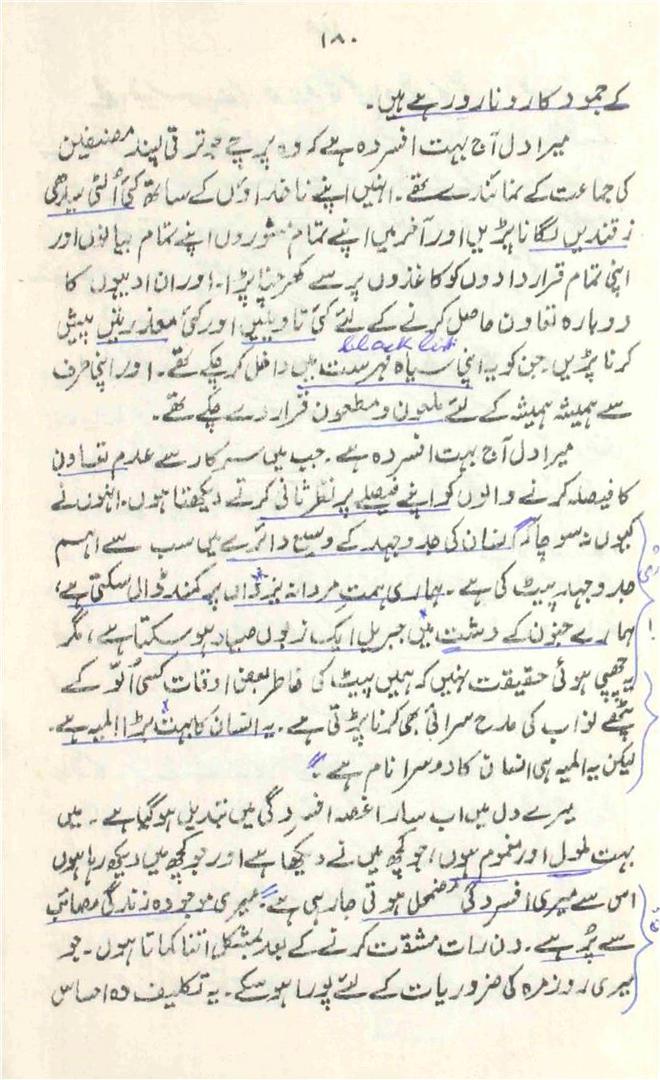 ۱۸۰
کے جمود کا رونا رو رہے ہیں۔
میرا دل آج بہت افسردہ ہے کہ وہ پرچے جو ترقی پسند مصنفین
کی جماعت کے نمائندے تھے۔ انہیں اپنے ناخداؤں کے ساتھ کئی اُلٹی سیدھی
زقندیں لگانا پڑیں اور آخر میں اپنے تمام منشوروں اپنے تمام بیانوں اور
اپنی تمام قراردادوں کو کاغذوں پر سے کھرچنا پڑا۔ اور ان ادیبوں کا
دوبارہ تعاون حاصل کرنے کے لئے کئی تاویلیں اور کئی معذرتیں پیش
black list
کرنا پڑیں۔ جن کو یہ اپنی سیاہ فہرست میں داخل کر چکے تھے۔ اور اپنی طرف
سے ہمیشہ ہمیشہ کے لئے ملعون و مطعون قرار دے چکے تھے۔
میرا دل آج بہت افسردہ ہے۔ جب میں سرکار سے عدم تعاون
کا فیصلہ کرنے والوں کو اپنے فیصلے پر نظر ثانی کرتے دیکھتا ہوں۔ انہوں نے
کیوں نہ سوچا کہ انسان کی جدوجہد کے وسیع دائرے میں سب سے اہم
جدوجہد پیٹ کی ہے۔ ہماری ہمتِ مردانہ یزداں پر کمند ڈال سکتی ہے،
ہمارے جنون کے دشت میں جبریل ایک زبوں صید ہو سکتا ہے، مگر
یہ چھپی ہوئی حقیقت نہیں کہ ہمیں پیٹ کی خاطر بعض اوقات کسی اُلّو کے
پٹھے نواب کی مدح سرائی بھی کرنا پڑتی ہے۔ یہ انسان کا بہت بڑا المیہ ہے۔
لیکن یہ المیہ ہی انسان کا دوسرا نام ہے۔
میرے دل میں اب سارا غصہ افسردگی میں تبدیل ہو گیا ہے۔ میں
بہت ملول اور مغموم ہوں، جو کچھ میں نے دیکھا ہے اور جو کچھ میں دیکھ رہا ہوں
اس سے میری افسردگی مضمحل ہوتی جا رہی ہے۔ میری موجودہ زندگی مصائب
سے پُر ہے۔ دن رات مشقت کرنے کے بعد بمشکل اتنا کماتا ہوں۔ جو
میری روزمرہ کی ضروریات کے لئے پورا ہو سکے۔ یہ تکلیف دہ احساس